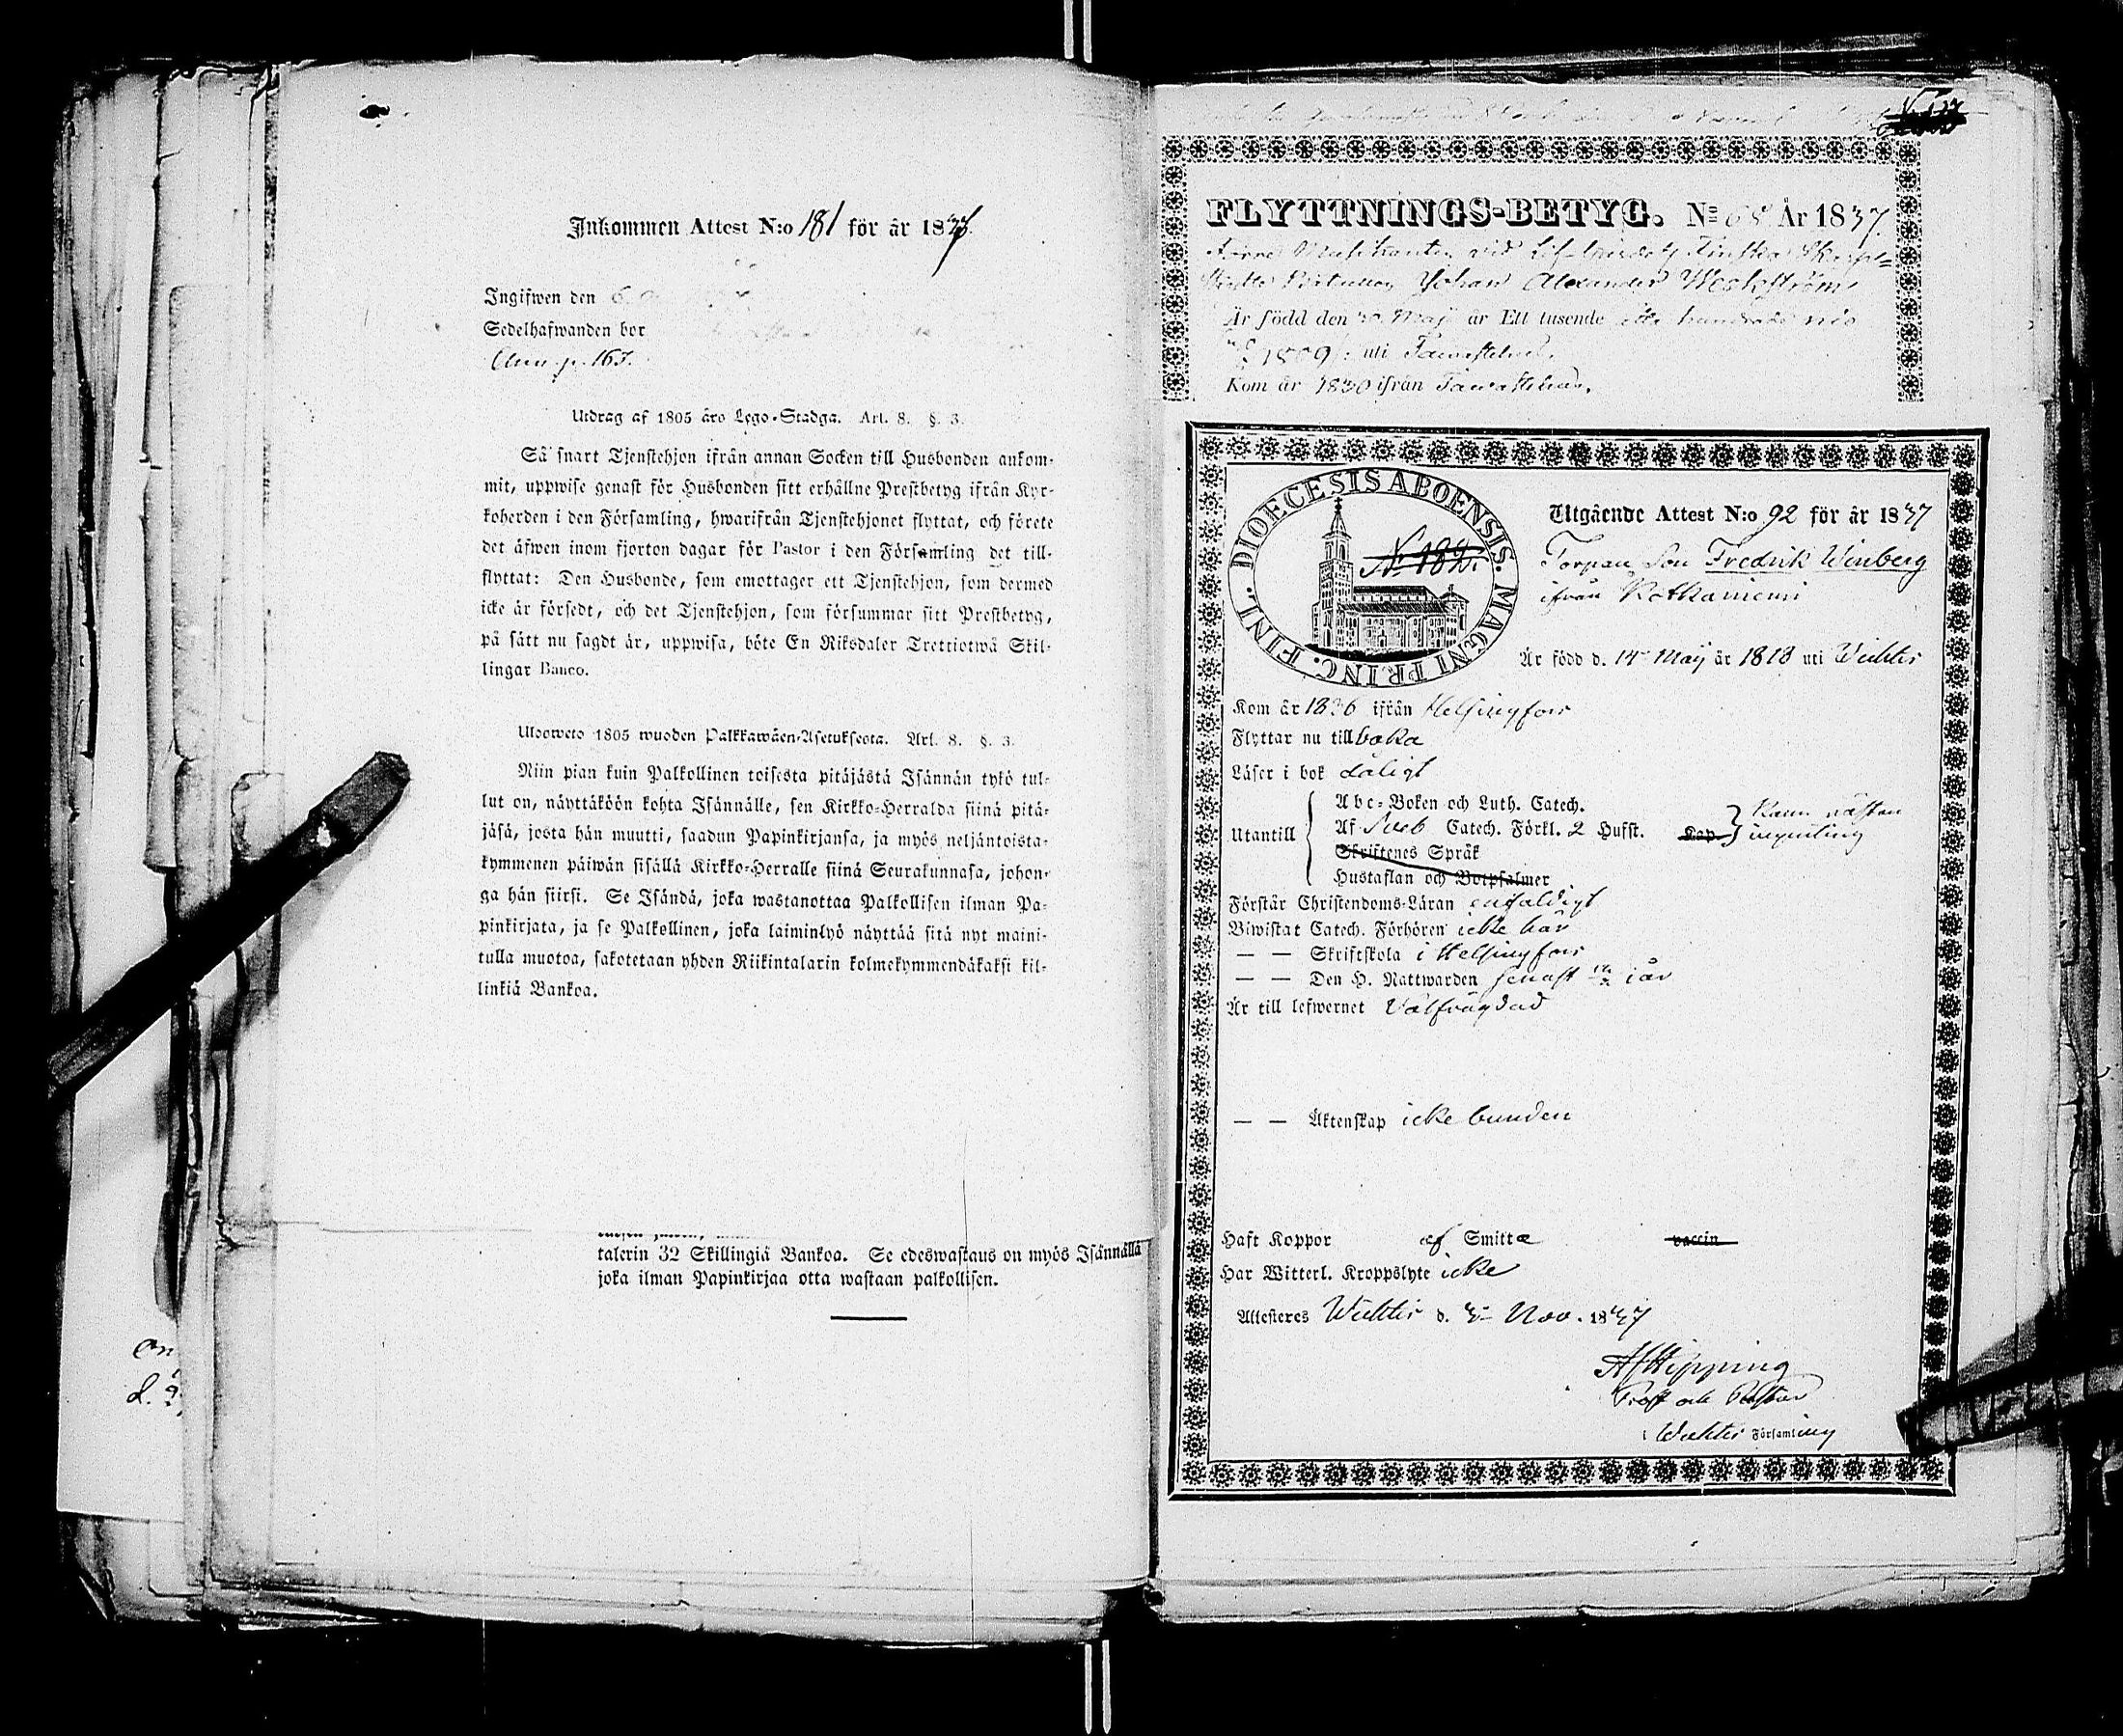 Inkommen Attest N:o 181 för år 1837.
Ingifwen den 6
Sedelhafwanden bor
Ann. p. 167.
Utdrag af 1805 års Lego-Stadga. Art. 8. §. 3.
Så snart Tjenstehjon ifrån annan Socken till Husbonden ankom-
mit, uppwise genast för Husbonden sitt erhållne Prestbetyg ifrån Kyr-
koherden i den Församling, hwarifrån Tjenstehjonet flyttat, och förete
det äfwen inom fjorton dagar för Pastor i den Församling det till-
flyttat: Den Husbonde, som emottager ett Tjenstehjon, som dermed
icke är försedt, och det Tjenstehjon, som försummar sitt Prestbetyg,
på sätt nu sagdt är, uppwisa, böte En Riksdaler Trettiotwå Skil-
lingar Banco.
Uloswets 1805 wuoden Palkkawäen-Asetuksesta. Art. 8. §. 3.
Niin pian kuin Palkollinen toisesta pitäjästä Isännän tykö tul-
lut on, näyttäköön kohta Isännälle, sen Kirkko-Herralda siinä pitä-
jäsä, josta hän muutti, saadun Papinkirjansa, ja myös neljäntoista-
kymmenen päiwän sisällä Kirkko-Herralle siinä Seurakunnasa, johon-
ga hän siirsi. Se Isändä, joka wastanottaa Palkollisen ilman Pa-
pinkirjata, ja se Palkollinen, joka laiminlyö näyttää sitä nyt maini-
tulla muotoa, sakotetaan yhden Riikintalarin kolmekymmendäkaksi kil-
linkiä Bankoa.
talerin 32 Skillingiä Bankoa. Se edeswastaus on myös Isännällä
joka ilman Papinkirjaa otta wastaan palkollisen.
FLYTTNINGS-BETYG. No 68 År 1837.
Förre Musikanten vid Lif-Gardets Finska Skarpskytte
Johan Alexander Weckström
Är född den 30 Maj år Ett tusende åtta hundrade nio
1809 uti Tawastehus.
Kom år 1830 ifrån Tawastehus.
DIOECESIS ABOENSIS. MAGNI PRINC. FINL.
N. 182.
Utgående Attest N:o 92 för år 1837
Torpare Son Fredrik Winberg
ifrån Rotkaniemi
Är född d. 14 Maij år 1818 uti Wichtis
Kom år 1836 ifrån Helsingfors
Flyttar nu tillbaka
Läser i bok dåligt
Utantill
Abc-Boken och Luth. Catech.
Af Sveb Catech. Förkl. 2 Hufst. Kap. Kann nästan ingenting
Skriftenes Språk
Hustaflan och Botpsalmer
Förstår Christendoms-Läran enfaldigt
Biwistat Catech. Förhören icke här
— — Skriftskola i Helsingfors
— — Den H. Nattwarden senast i år
Är till lefwernet Välfrägdad
— — Äktenskap icke bunden
Haft Koppor af Smitta vaccin
Har Witterl. Kroppslyte icke
Attesteres Wichtis d. 3 Nov. 1837
AfHipping
Prost och Pastor
i Wichtis Församling